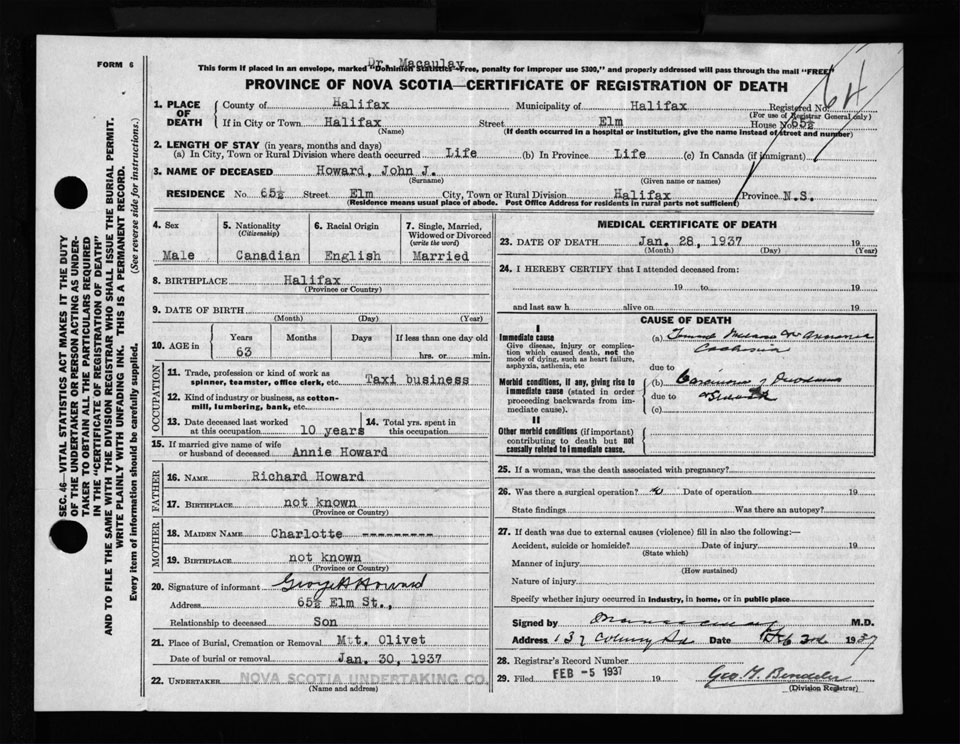 FORM 6
Dr. Macaulay
This form if placed in an envelope, marked "Dominion Statistics—Free, penalty for improper use $300," and properly addressed will pass through the mail "FREE"
PROVINCE OF NOVA SCOTIA—CERTIFICATE OF REGISTRATION OF DEATH
64
1. PLACE OF DEATH
County of Halifax Municipality of Halifax Registered No.
(For use of Registrar General only)
If in City or Town Halifax Street Elm House No. 65½
(Name) (If death occurred in a hospital or institution, give the name instead of street and number)
2. LENGTH OF STAY (in years, months and days)
(a) In City, Town or Rural Division where death occurred Life (b) In Province Life (c) In Canada (if immigrant)
3. NAME OF DECEASED Howard, John J.
(Surname) (Given name or names)
RESIDENCE No. 65½ Street Elm City, Town or Rural Division Halifax Province N.S.
(Residence means usual place of abode. Post Office Address for residents in rural parts not sufficient)
SEC. 46—VITAL STATISTICS ACT MAKES IT THE DUTY
OF THE UNDERTAKER OR PERSON ACTING AS UNDER-
TAKER TO OBTAIN ALL THE PARTICULARS REQUIRED
IN THE "CERTIFICATE OF REGISTRATION OF DEATH"
AND TO FILE THE SAME WITH THE DIVISION REGISTRAR WHO SHALL ISSUE THE BURIAL PERMIT.
WRITE PLAINLY WITH UNFADING INK. THIS IS A PERMANENT RECORD.
Every item of information should be carefully supplied. (See reverse side for instructions.)
4. Sex
Male
5. Nationality
(Citizenship)
Canadian
6. Racial Origin
English
7. Single, Married,
Widowed or Divorced
(write the word)
Married
8. BIRTHPLACE Halifax
(Province or Country)
9. DATE OF BIRTH
(Month) (Day) (Year)
10. AGE in
Years Months Days If less than one day old
63 hrs. or min.
OCCUPATION
11. Trade, profession or kind of work as
spinner, teamster, office clerk, etc. Taxi business
12. Kind of industry or business, as cotton-
mill, lumbering, bank, etc.
13. Date deceased last worked
at this occupation 10 years
14. Total yrs. spent in
this occupation
15. If married give name of wife
or husband of deceased Annie Howard
FATHER
16. NAME Richard Howard
17. BIRTHPLACE not known
(Province or Country)
MOTHER
18. MAIDEN NAME Charlotte ---------
19. BIRTHPLACE not known
(Province or Country)
20. Signature of informant George H Howard
Address 65½ Elm St.,
Relationship to deceased Son
21. Place of Burial, Cremation or Removal Mtt. Olivet
Date of burial or removal Jan. 30, 1937
22. UNDERTAKER NOVA SCOTIA UNDERTAKING CO.
(Name and address)
MEDICAL CERTIFICATE OF DEATH
23. DATE OF DEATH Jan. 28, 1937 19
(Month) (Day) (Year)
24. I HEREBY CERTIFY that I attended deceased from:
19 to 19
and last saw h alive on 19
CAUSE OF DEATH
I
Immediate cause
Give disease, injury or complica-
tion which caused death, not the
mode of dying, such as heart failure,
asphyxia, asthenia, etc
(a)
due to
Morbid conditions, if any, giving rise to
immediate cause (stated in order
proceeding backwards from im-
mediate cause).
(b) Carcinoma of
due to
(c)
II
Other morbid conditions (if important)
contributing to death but not
causally related to immediate cause.
25. If a woman, was the death associated with pregnancy?
26. Was there a surgical operation? Date of operation 19
State findings Was there an autopsy?
27. If death was due to external causes (violence) fill in also the following:—
Accident, suicide or homicide? Date of injury 19
(State which)
Manner of injury
(How sustained)
Nature of injury
Specify whether injury occurred in industry, in home, or in public place
Signed by M.D.
Address 137 Date Feb 3rd 1937
28. Registrar's Record Number
29. Filed FEB -5 1937 19
(Division Registrar)